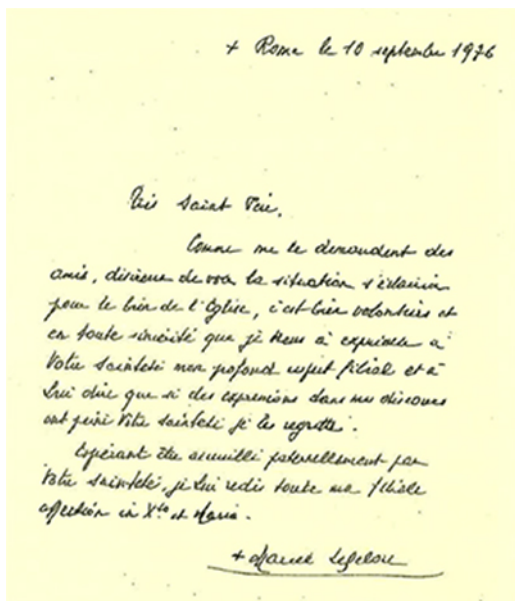 + Rome le 10 septembre 1976
Très Saint Père,
Comme me le demandent des
amis, désireux de voir la situation s'éclaircir
pour le bien de l'Eglise, c'est bien volontiers et
en toute sincérité que je tiens à exprimer à
Votre Sainteté mon profond respect filial et à
Lui dire que si des expressions dans mes discours
ont peiné Votre Sainteté je les regrette.
Espérant être accueilli paternellement par
Votre Sainteté, je Lui redis toute ma filiale
affection in Xto et Maria.
+ Marcel Lefebvre